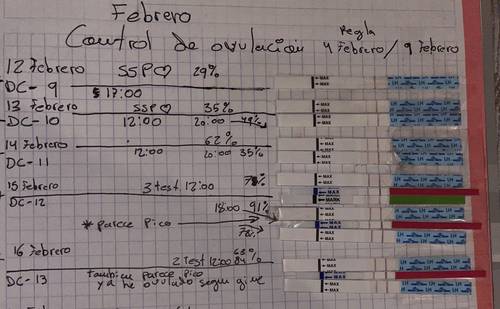 Febrero
Control de ovulación
Regla
4 febrero / 9 febrero
12 Febrero SSP♡ 29%
DC-9 17:00
13 Febrero SSP♡ 35%
DC-10 12:00 20:00 49%
14 Febrero 62%
DC-11 12:00 20:00 35%
15 Febrero 3 test 12:00
DC-12 18:00 91%
* parece Pico 78%
16 Febrero 63%
2 Test 12:00 84%
DC-13 tambien parece pico
ya he ovulado segun
← MAX
← MAX
← MAX
← MAX
← MAX
← MAX
← MARK
← MAX
← MAX
← MAX
← MAX
← MAX
← MAX
LH LH LH